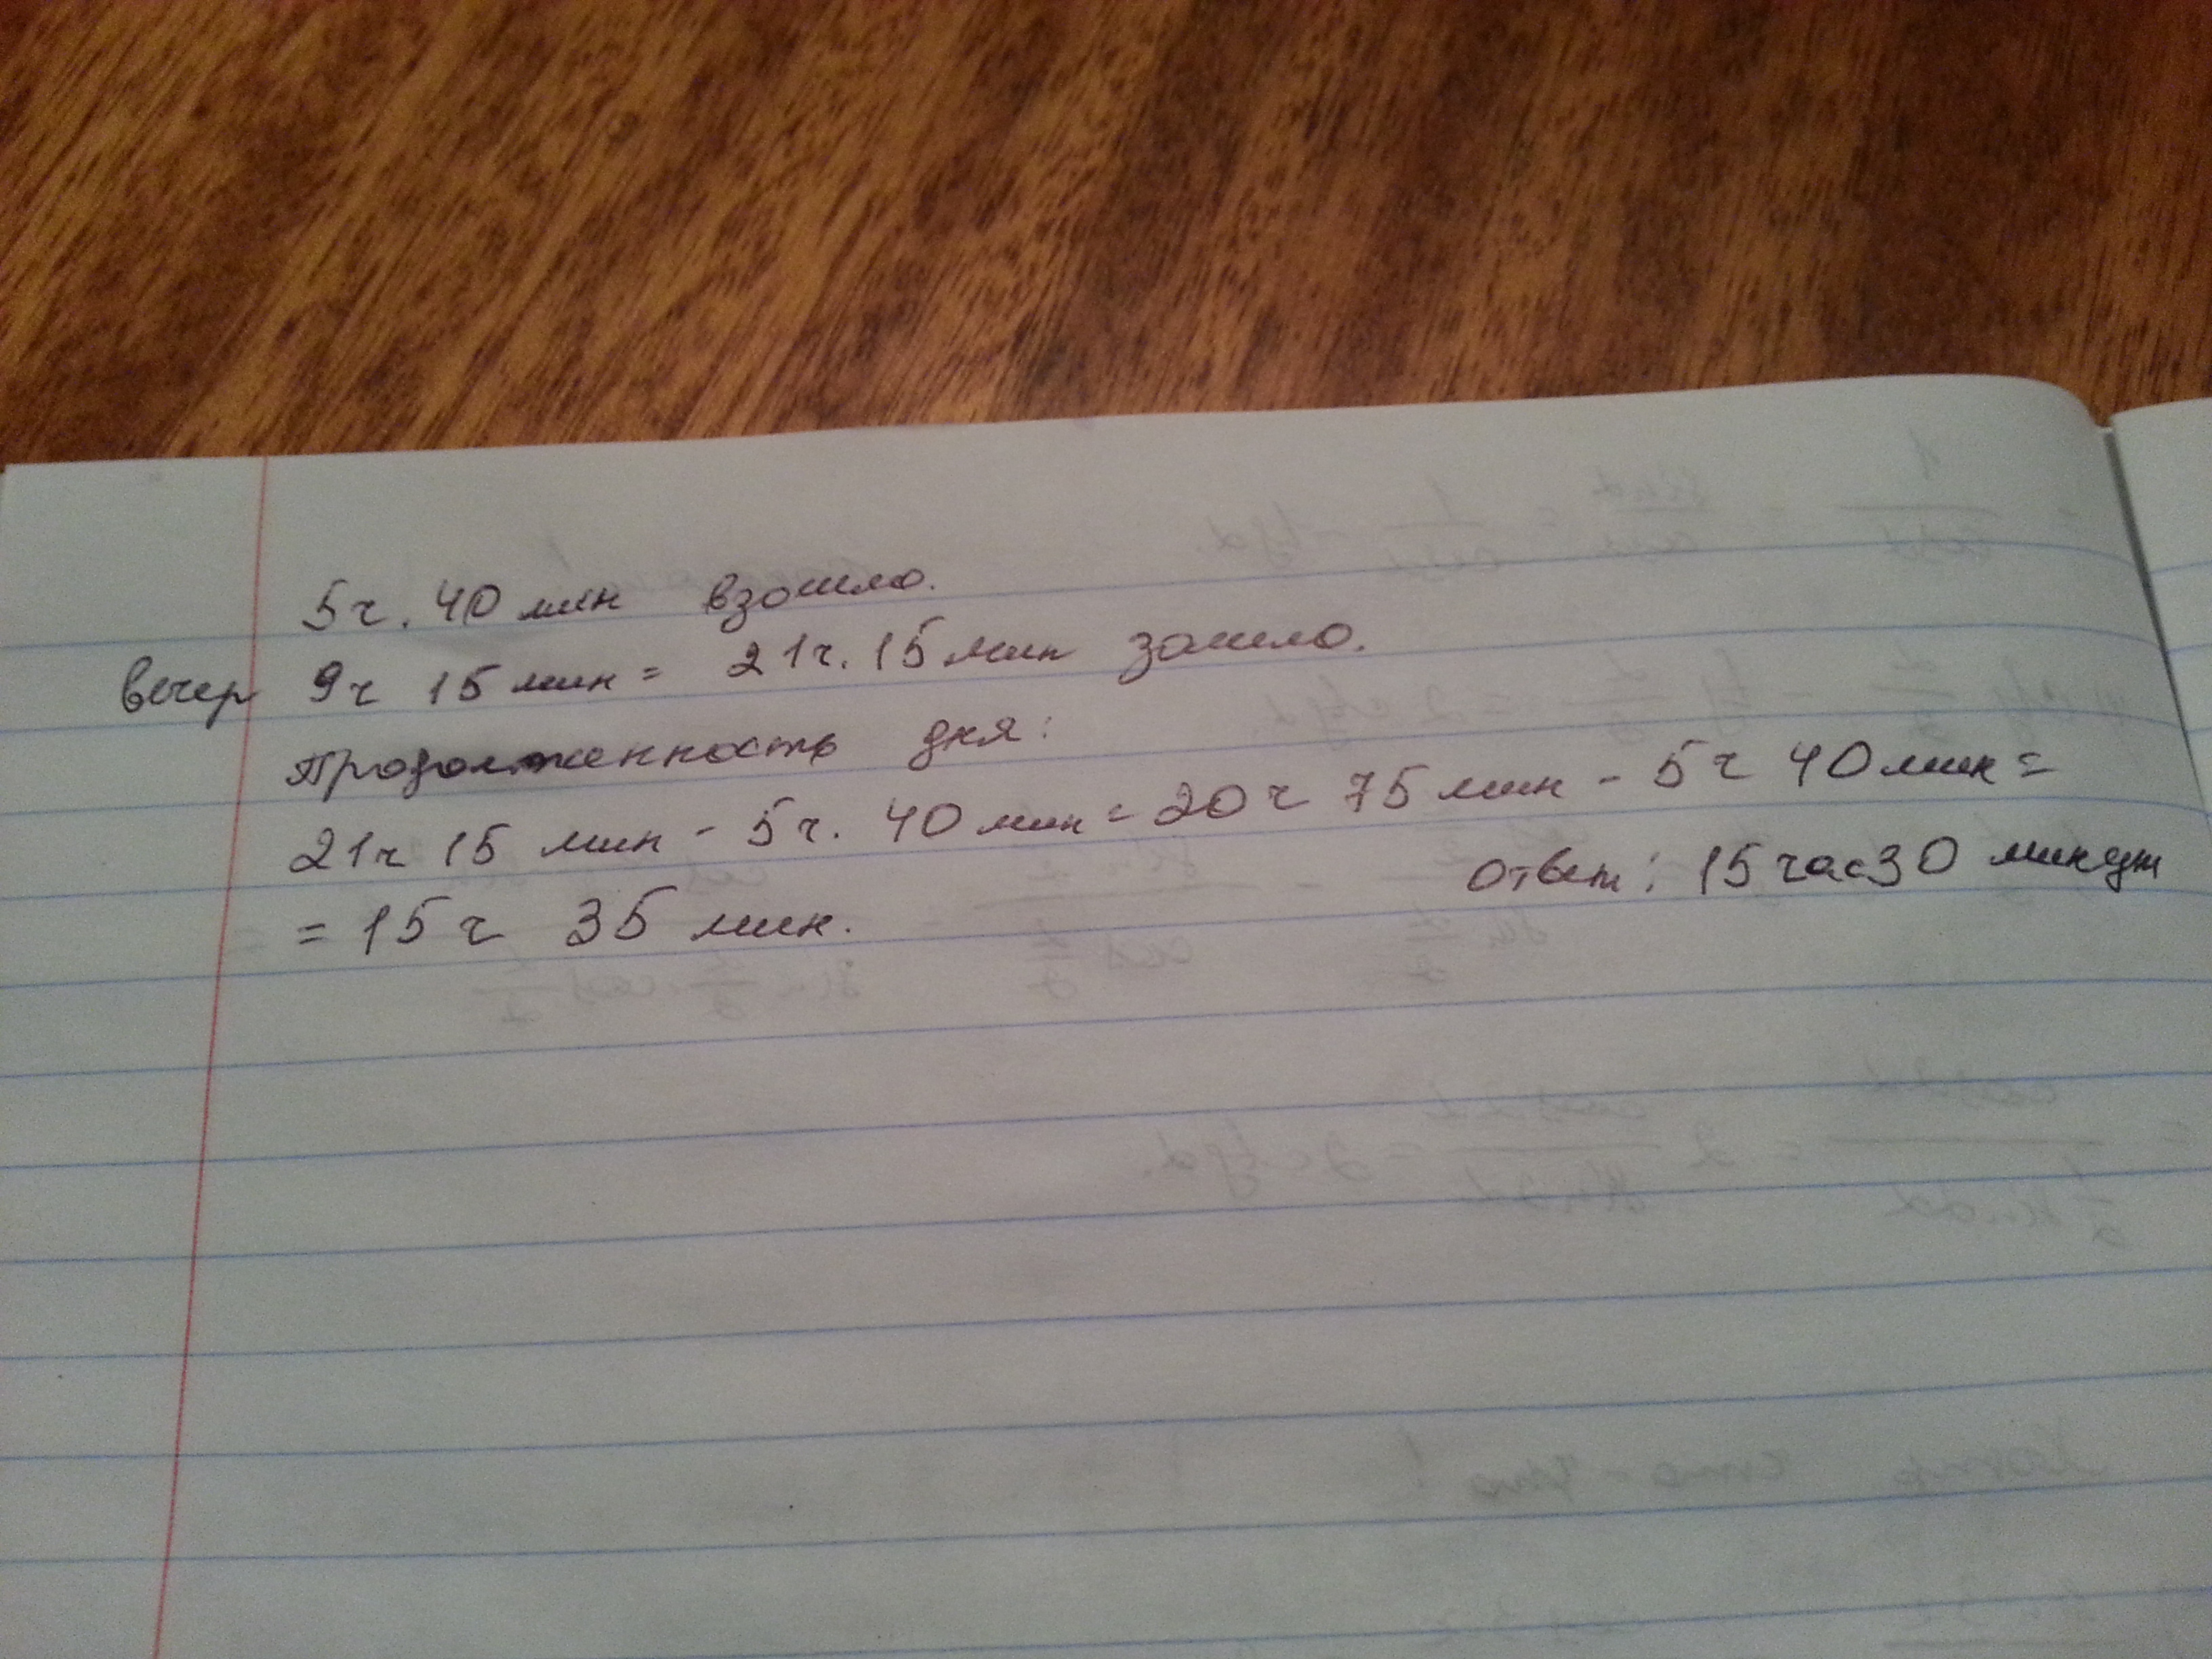 5ч. 40 мин взошло.
вечер 9ч 15 мин = 21ч. 15 мин зашло.
Продолженность дня:
21ч 15 мин - 5ч. 40 мин = 20ч 75 мин - 5ч 40 мин =
= 15ч 35 мин.
Ответ: 15 час 30 минут